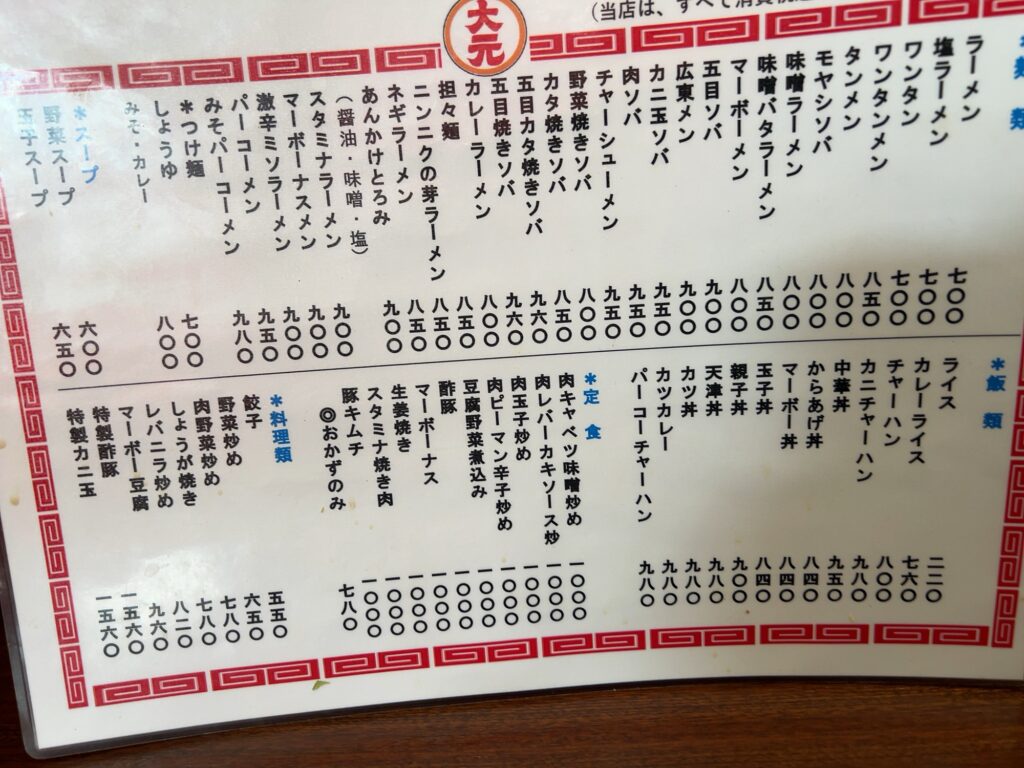 大元
(当店は、すべて消費税
*麺 類
ラーメン 七〇〇
塩ラーメン 七〇〇
ワンタン 七〇〇
ワンタンメン 八五〇
タンメン 八〇〇
モヤシソバ 八〇〇
味噌ラーメン 八〇〇
味噌バタラーメン 八五〇
マーボーメン 八〇〇
五目ソバ 九〇〇
広東メン 九〇〇
カニ玉ソバ 九五〇
肉ソバ 九五〇
チャーシューメン 九五〇
野菜焼きソバ 八〇〇
カタ焼きソバ 八五〇
五目カタ焼きソバ 九六〇
五目焼きソバ 九六〇
カレーラーメン 八〇〇
担々麺 八五〇
ニンニクの芽ラーメン 八五〇
ネギラーメン 八五〇
あんかけとろみ 九〇〇
(醤油・味噌・塩)
スタミナラーメン 九〇〇
マーボーナスメン 九〇〇
激辛ミソラーメン 九〇〇
パーコーメン 九五〇
みそパーコーメン 九八〇
*つけ麺
しょうゆ 七〇〇
みそ・カレー 八〇〇
*スープ
野菜スープ 六〇〇
玉子スープ 六五〇
*飯 類
ライス 二二〇
カレーライス 七六〇
チャーハン 八〇〇
カニチャーハン 九八〇
中華丼 九五〇
からあげ丼 八四〇
マーボー丼 八四〇
玉子丼 八四〇
親子丼 九〇〇
天津丼 九八〇
カツ丼 九八〇
カツカレー 九八〇
パーコーチャーハン 九八〇
*定 食
肉キャベツ味噌炒め 一〇〇〇
肉レバーカキソース炒 一〇〇〇
肉玉子炒め 一〇〇〇
肉ピーマン辛子炒め 一〇〇〇
豆腐野菜煮込み 一〇〇〇
酢豚 一〇〇〇
マーボーナス 一〇〇〇
生姜焼き 一〇〇〇
スタミナ焼き肉 一〇〇〇
豚キムチ 一〇〇〇
◎おかずのみ 七八〇
*料理類
餃子 五五〇
野菜炒め 六五〇
肉野菜炒め 七八〇
しょうが焼き 七八〇
レバニラ炒め 八二〇
マーボー豆腐 九六〇
特製酢豚 一五六〇
特製カニ玉 一五六〇